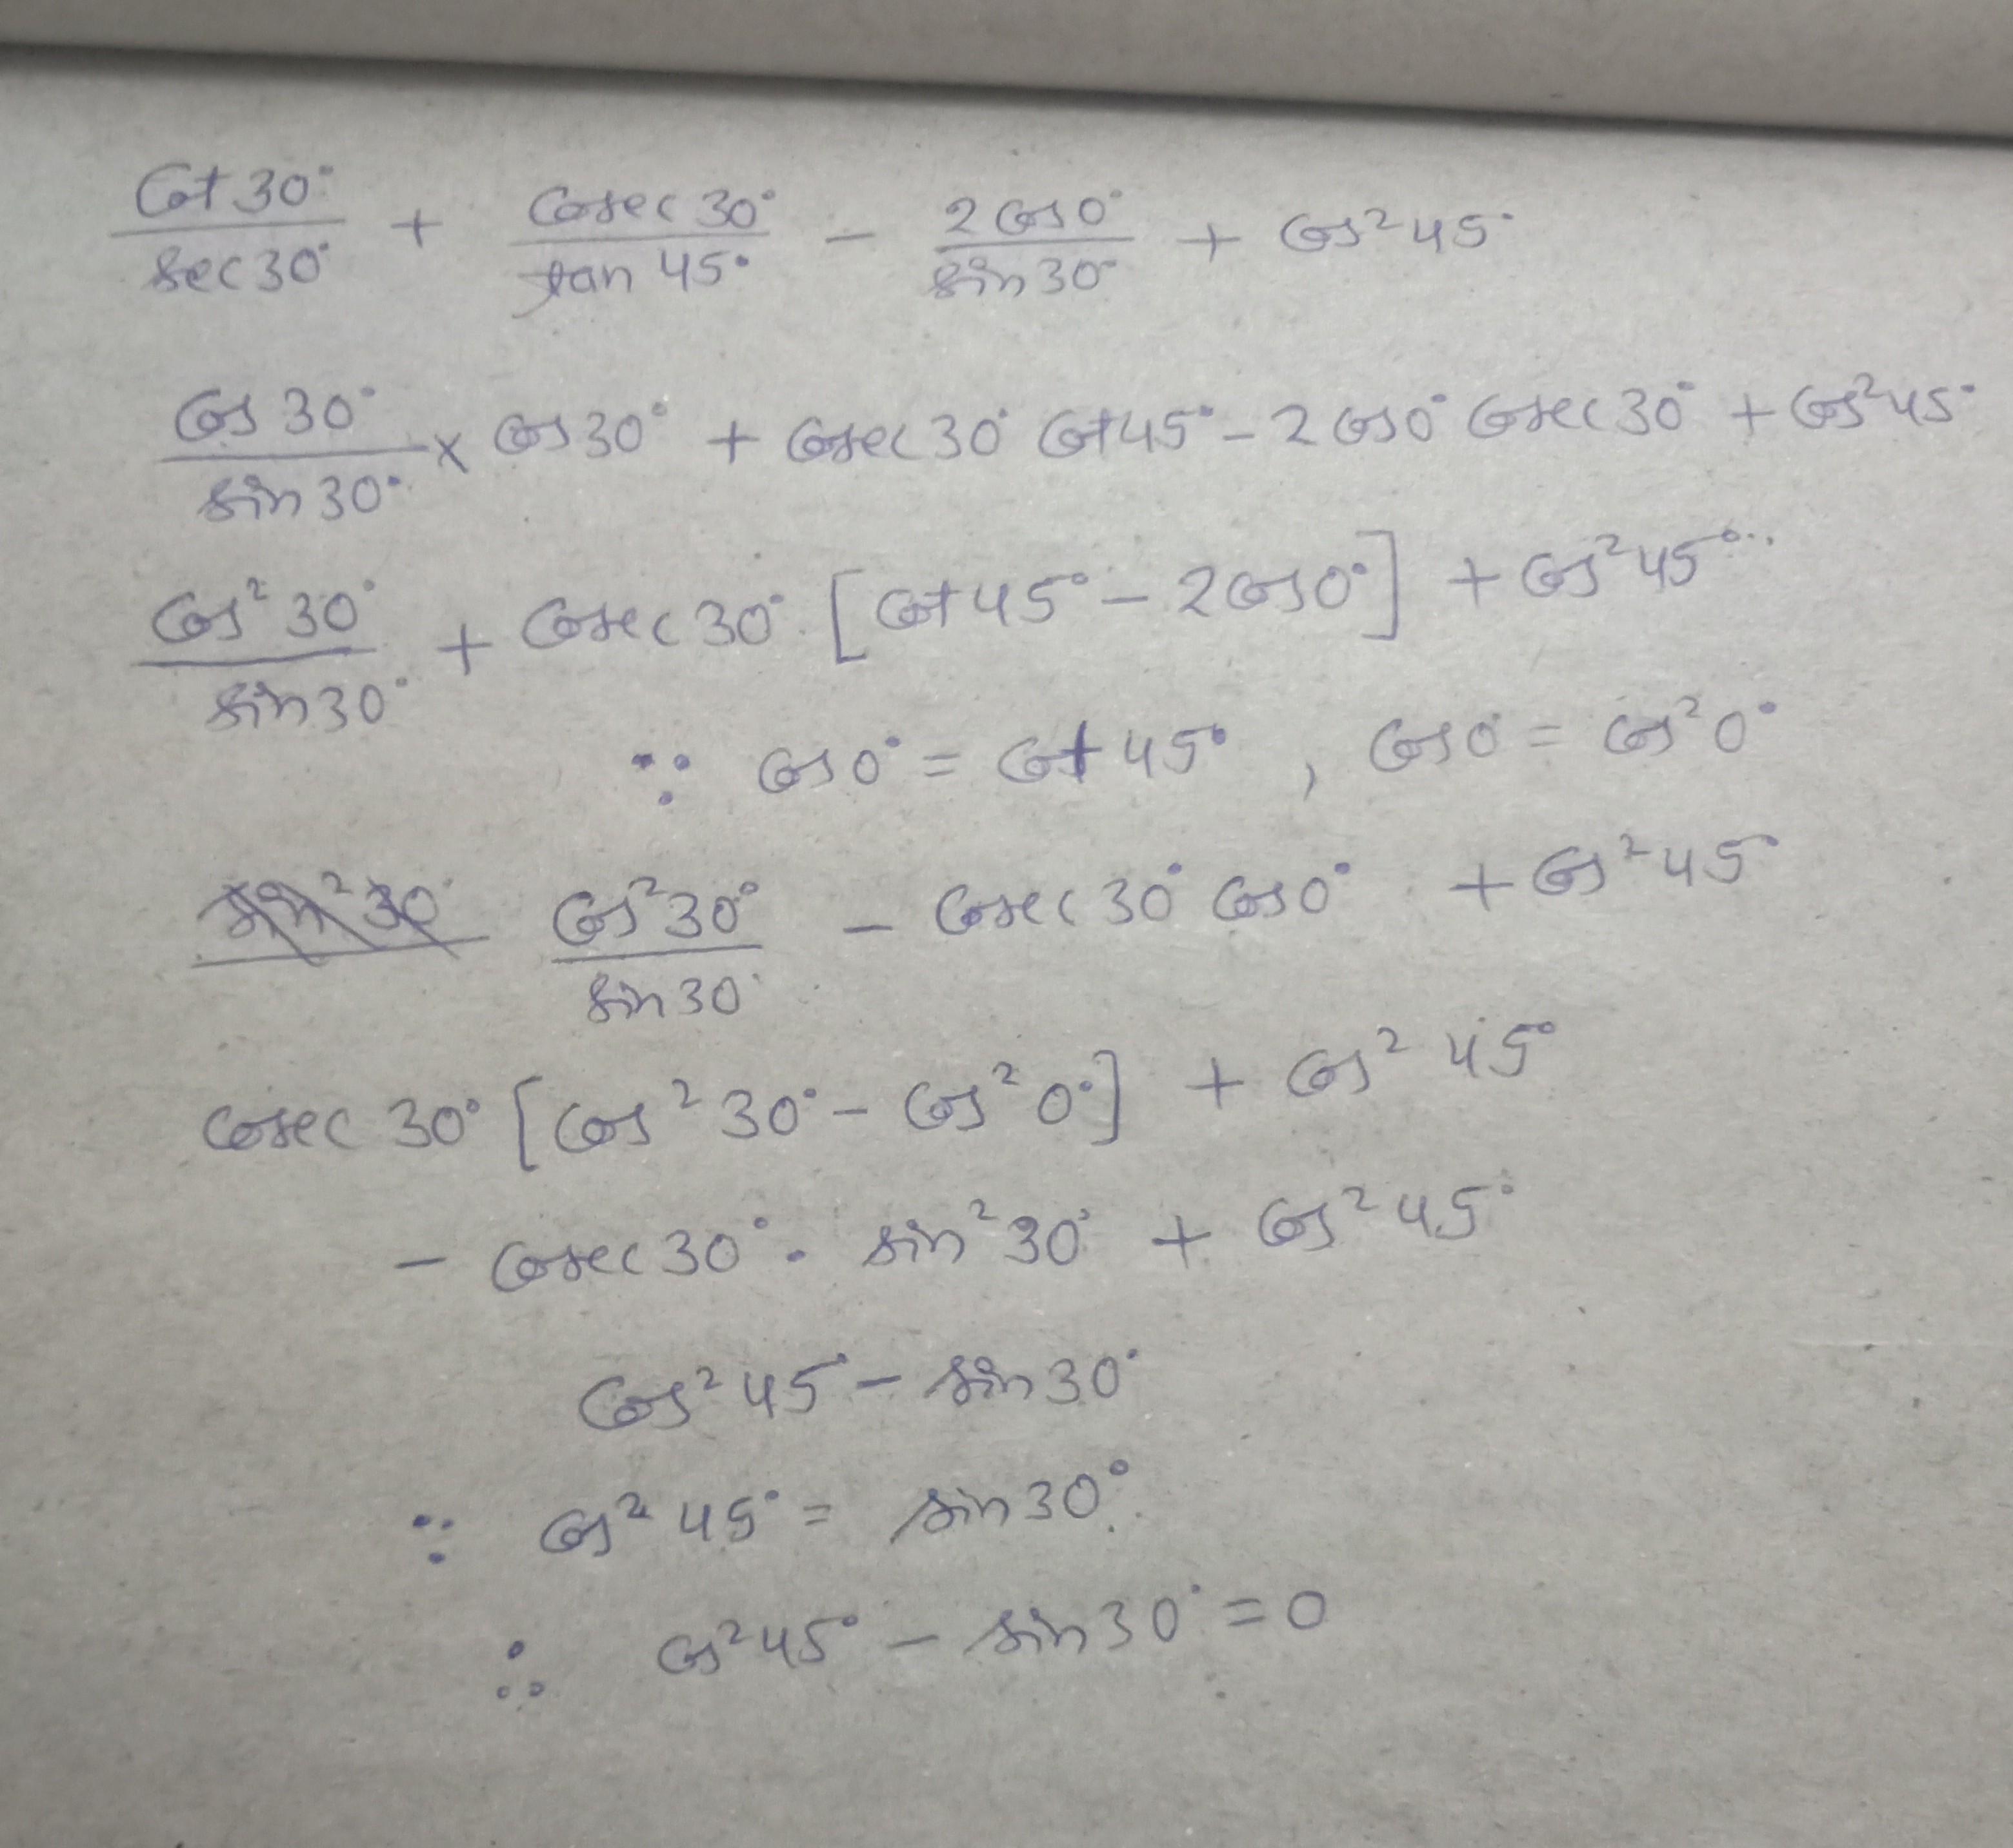 Cot 30° / sec 30° + Cosec 30° / tan 45° - 2 cos 0° / sin 30° + cos² 45°
Cos 30° / sin 30° × cos 30° + cosec 30° cot 45° - 2 cos 0° cosec 30° + cos² 45°
Cos² 30° / sin 30° + Cosec 30° [cot 45° - 2 cos 0°] + cos² 45°
∵ cos 0° = cot 45° , cos 0° = cos² 0°
Cos² 30° / sin 30° - Cosec 30° cos 0° + cos² 45°
cosec 30° [cos² 30° - cos² 0°] + cos² 45°
- cosec 30° . sin² 30° + cos² 45°
Cos² 45° - sin 30°
∵ cos² 45° = sin 30°
∴ cos² 45° - sin 30° = 0